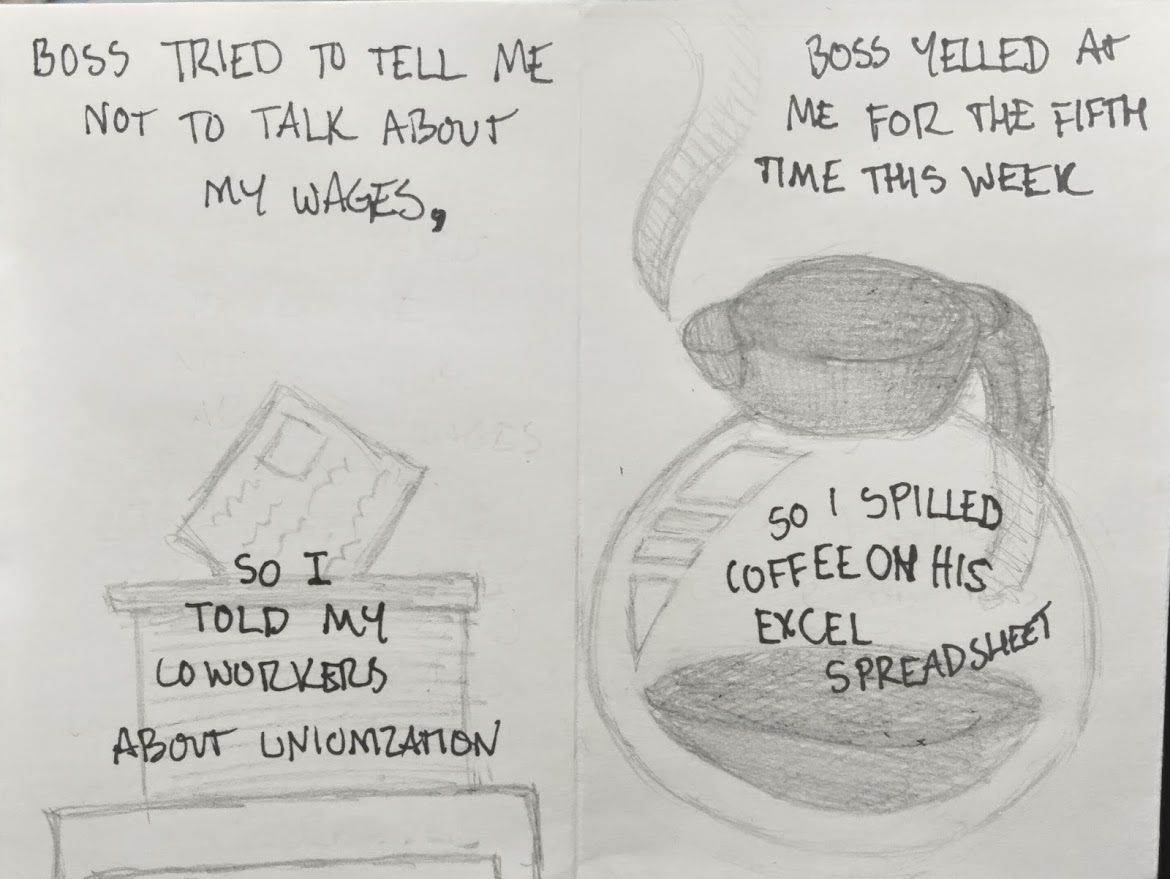 BOSS TRIED TO TELL ME
NOT TO TALK ABOUT
MY WAGES,
SO I
TOLD MY
COWORKERS
ABOUT UNIONIZATION
BOSS YELLED AT
ME FOR THE FIFTH
TIME THIS WEEK
SO I SPILLED
COFFEE ON HIS
EXCEL
SPREADSHEET